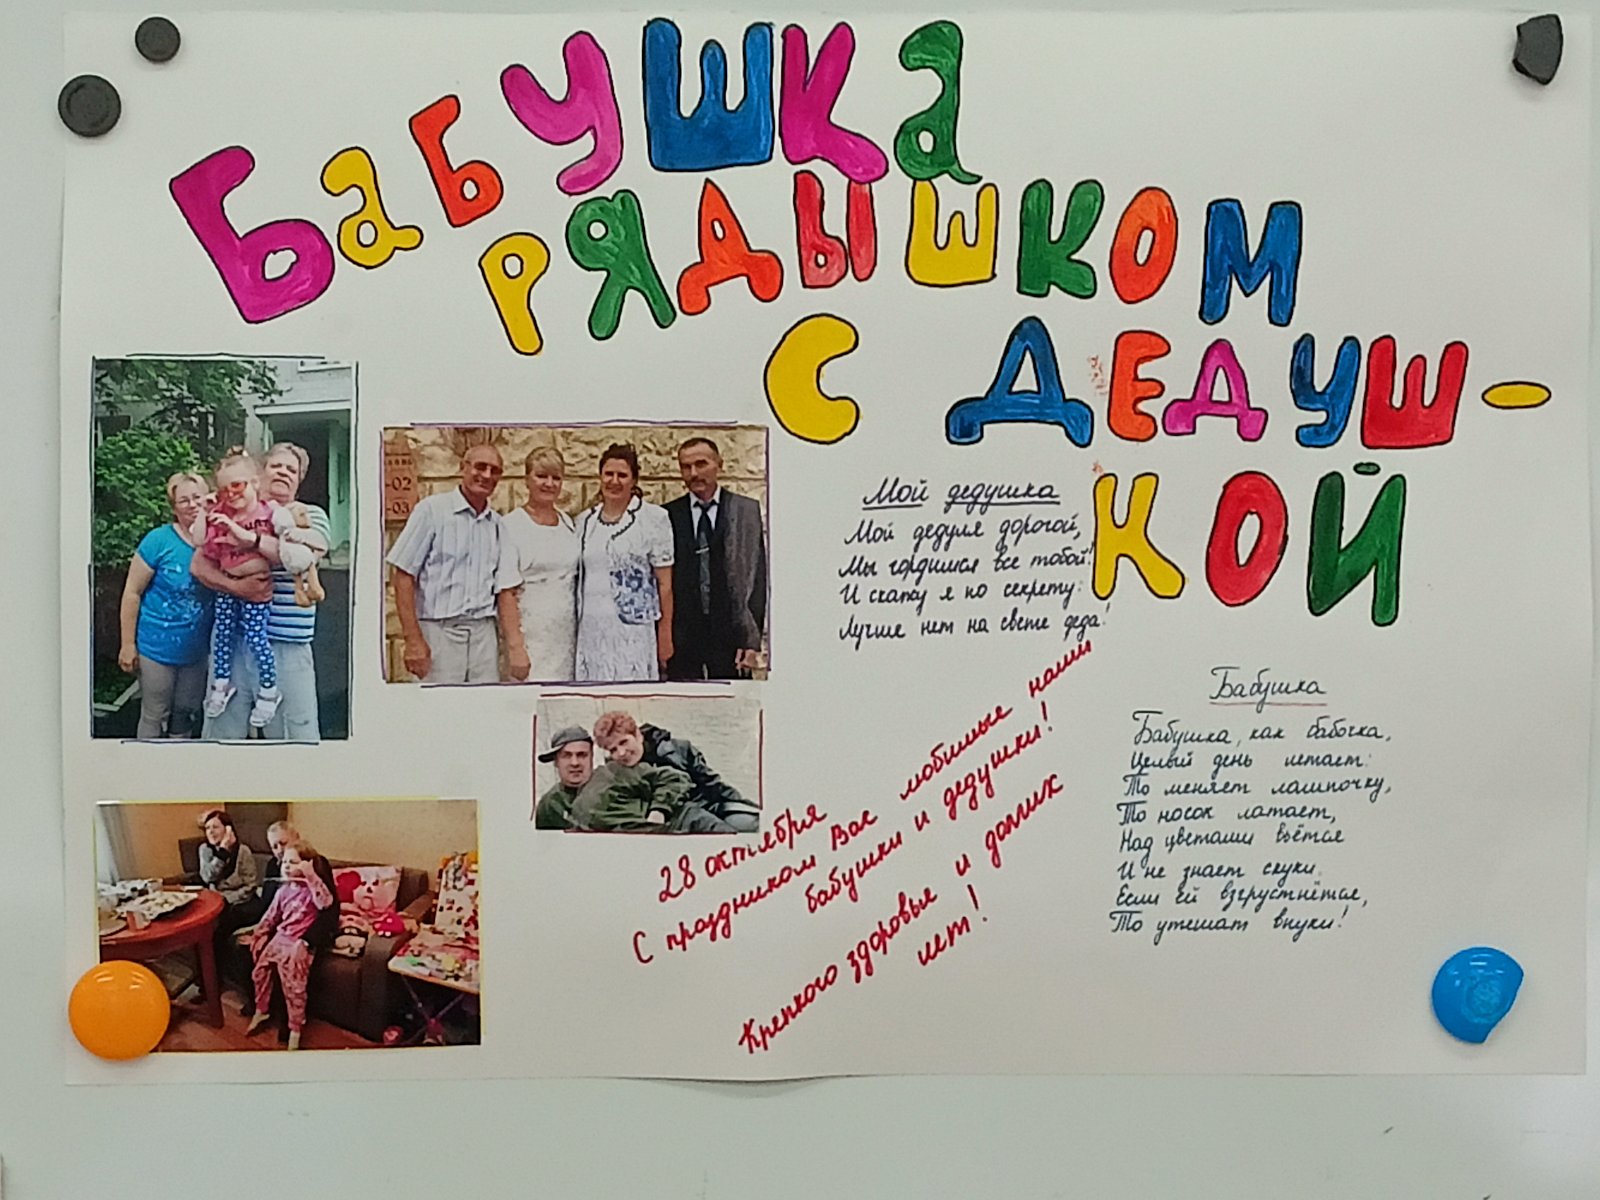 Бабушка
рядышком
с дедуш-
кой
Мой дедушка
Мой дедуля дорогой,
Мы гордимся все тобой!
И скажу я по секрету:
Лучше нет на свете деда!
28 октября
С праздником Вас любимые наши
бабушки и дедушки!
Крепкого здоровье и долгих
лет!
Бабушка
Бабушка, как бабочка,
Целый день летает:
То меняет лампочку,
То носок латает,
Над цветами вьётся
И не знает скуки.
Если ей взгрустнётся,
То утешат внуки!
-02
-03